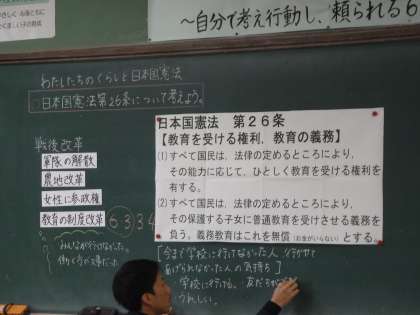 やさしく 心身ともに
たくましい子の育成
～自分で考え行動し、頼られる6
わたしたちのくらしと日本国憲法
日本国憲法第26条について考えよう。
戦後改革
軍隊の解散
農地改革
女性に参政権
教育の制度改革 6 3 3 4
みんなが行けなかった。
働く方が大事だった
日本国憲法 第26条
【教育を受ける権利、教育の義務】
(1) すべて国民は、法律の定めるところにより、
その能力に応じて、ひとしく教育を受ける権利を
有する。
(2) すべて国民は、法律の定めるところにより、
その保護する子女に普通教育を受けさせる義務を
負う。義務教育はこれを無償（お金がいらない）とする。
[今まで学校に行けてなかった人 行かせて
あげられなかった人の気持ち]
・学校に行ける。友だちが
うれしい。